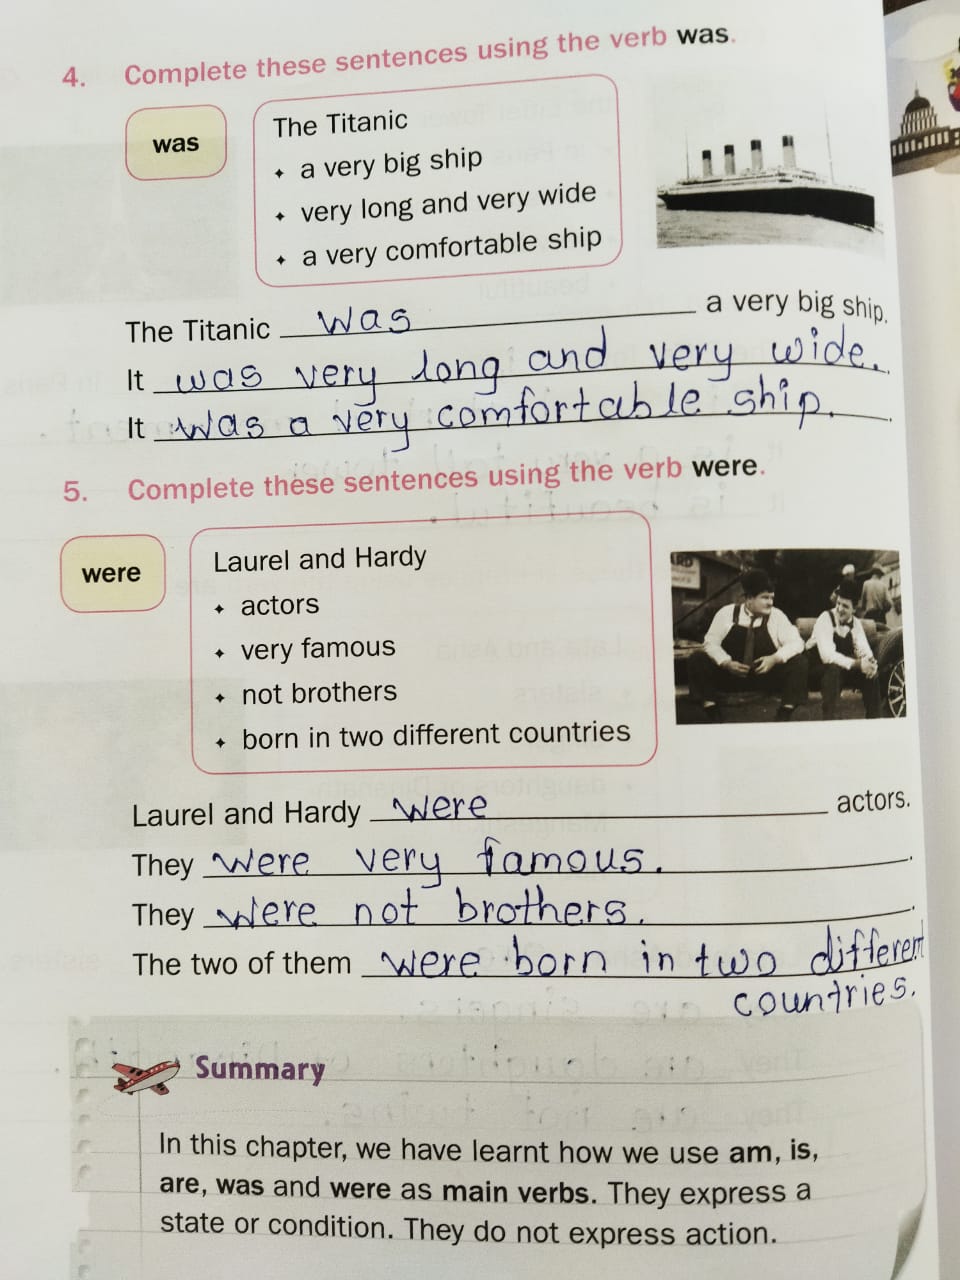 4. Complete these sentences using the verb was.
was
The Titanic
✦ a very big ship
✦ very long and very wide
✦ a very comfortable ship
The Titanic was a very big ship.
It was very long and very wide.
It was a very comfortable ship.
5. Complete these sentences using the verb were.
were
Laurel and Hardy
✦ actors
✦ very famous
✦ not brothers
✦ born in two different countries
Laurel and Hardy were actors.
They were very famous.
They were not brothers.
The two of them were born in two different
countries.
Summary
In this chapter, we have learnt how we use am, is,
are, was and were as main verbs. They express a
state or condition. They do not express action.